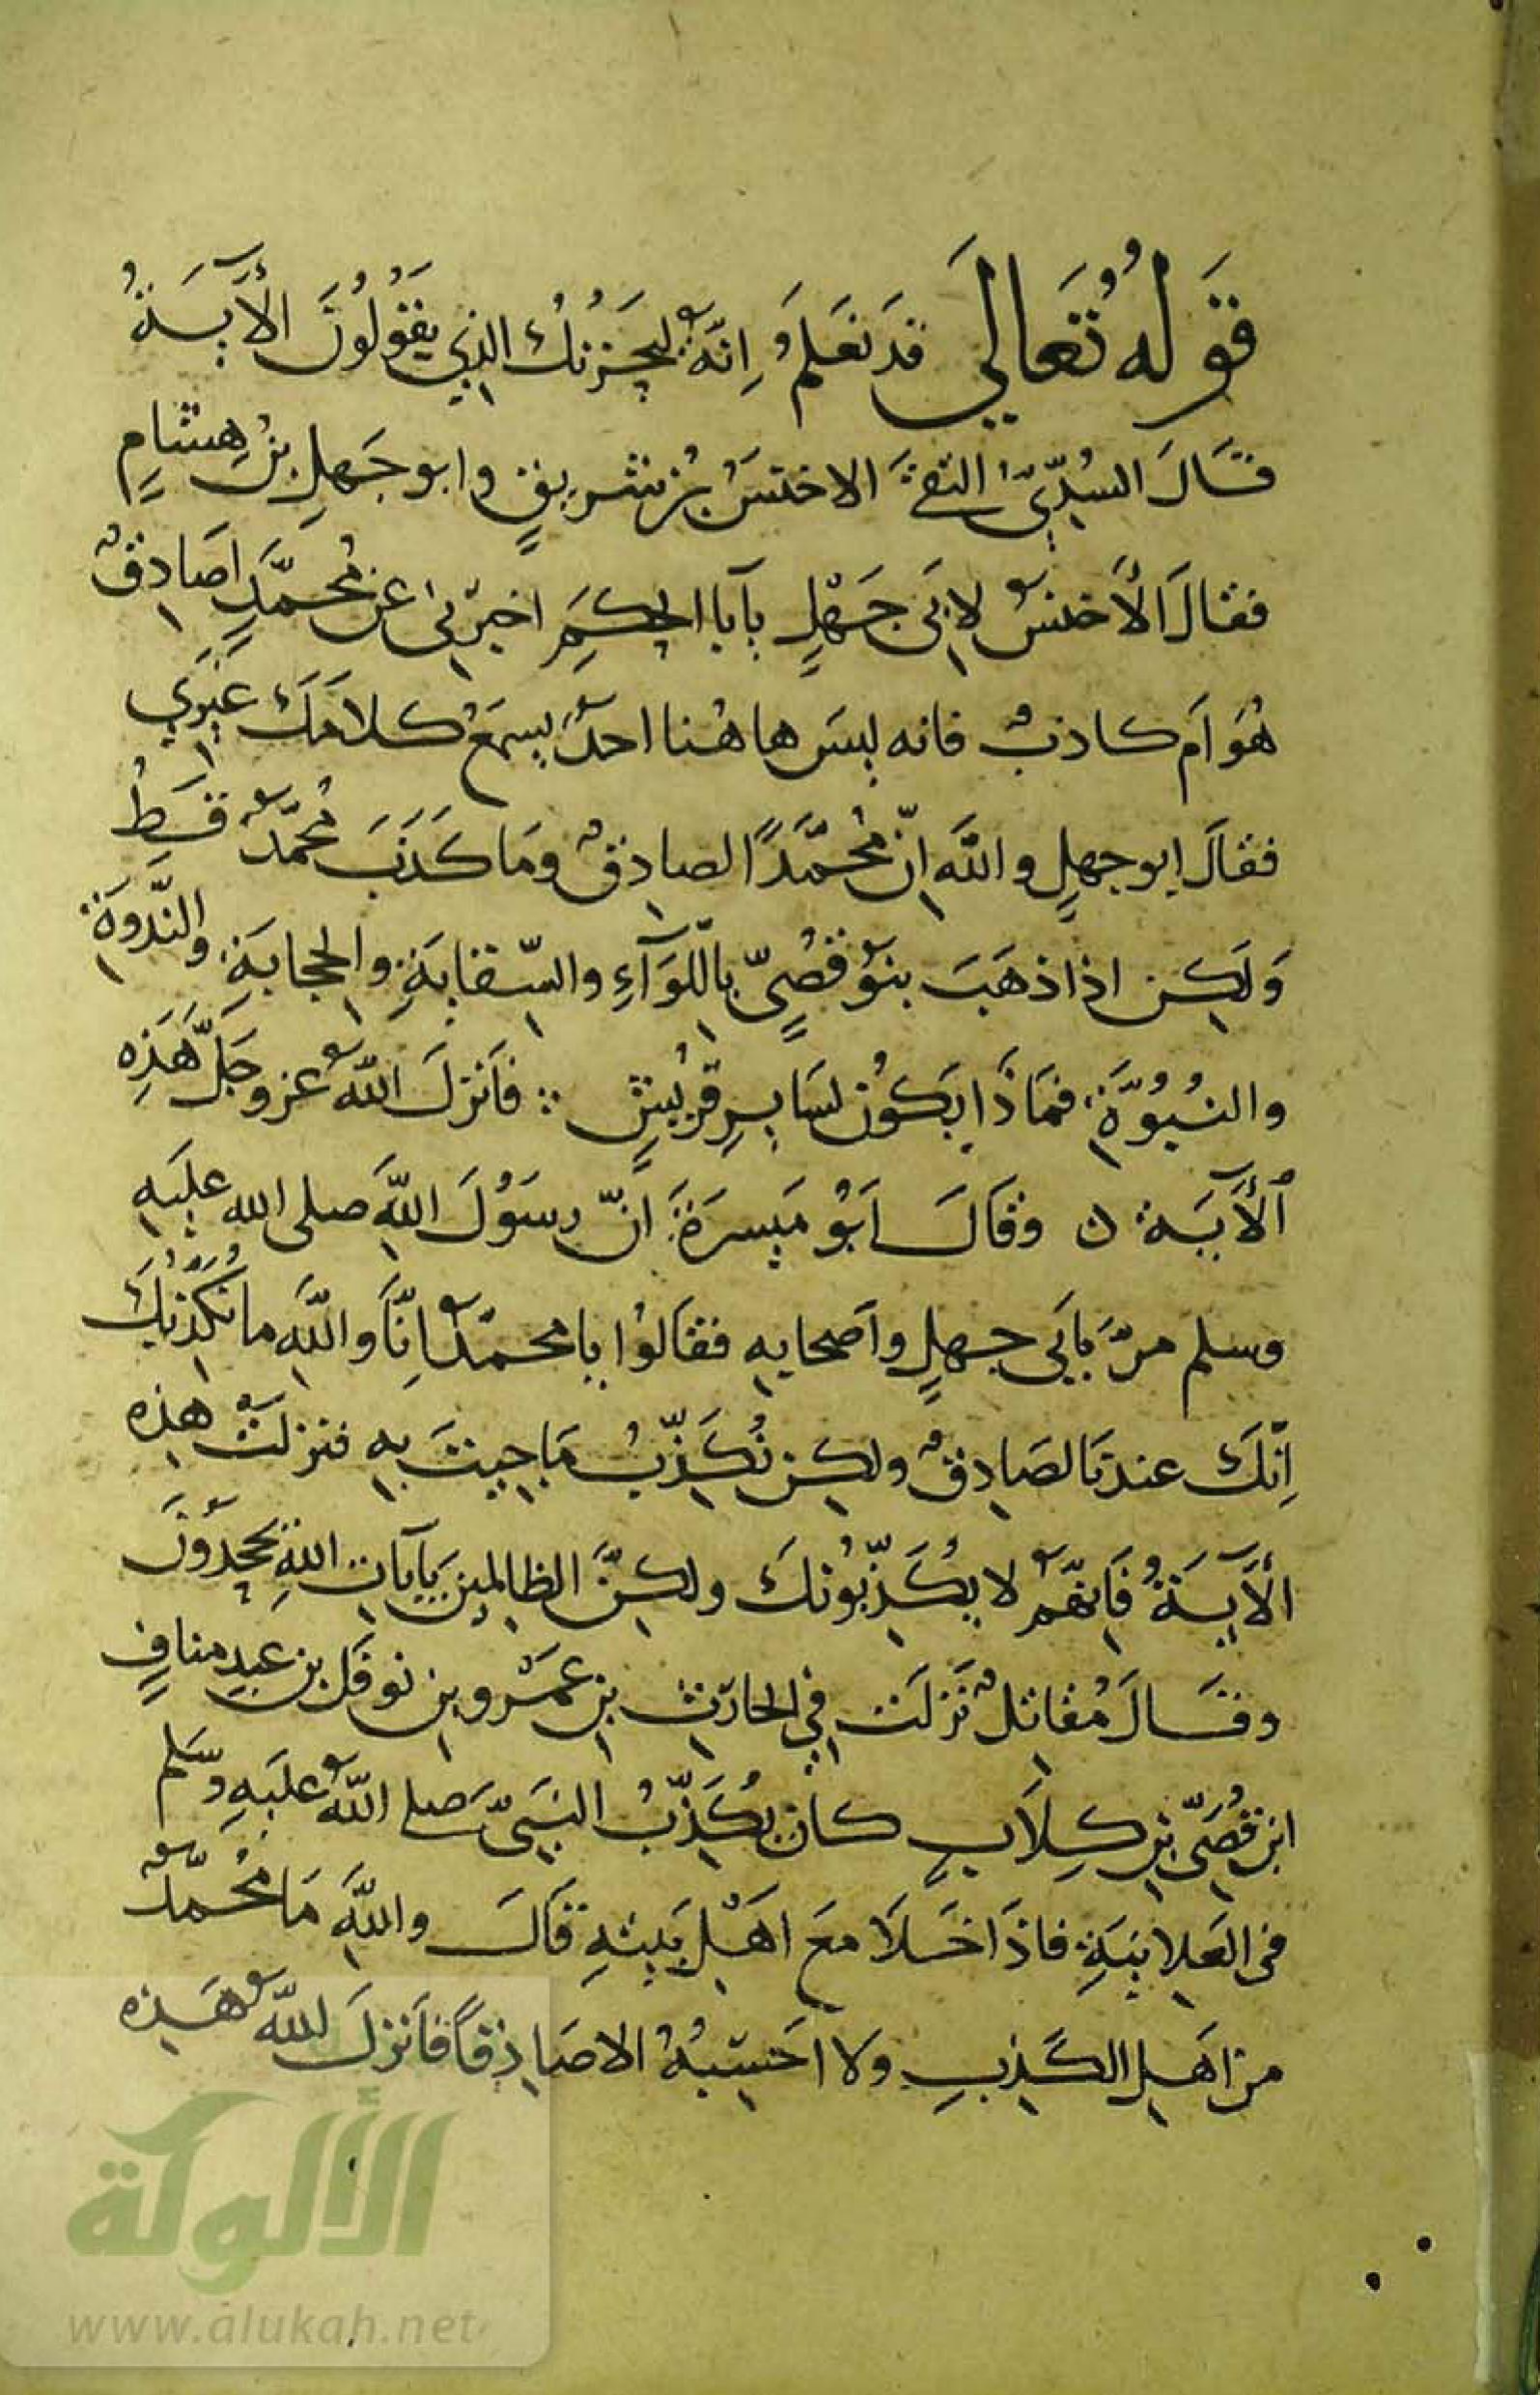 قَوْلُهُ تَعَالَي قَد نَعلَمُ اِنَّهُ لَيَحْزُنُكَ الذِي يَقُولُونَ الْأَيَةُ
قَالَ السُدِّيّ التقَى الاخنَسُ بْنُ شرِيقٍ وابو جَهلِ بنُ هِشامٍ
فقالَ الْأَخنسُ لابَى جَهْلٍ يآبا الحكَمِ اخبِرْني عن مُحمَّدٍ اَصَادِقٌ
هُوَ اَم كاذبٌ فانه ليسَ هاهُنا احدٌ يسمَعُ كلاَمَكَ غيرَي
فقالَ ابو جهلٍ واللهِ اِنّ مُحَمَّدًا لصادِقٌ ومَا كَذَبَ مُحَمّدٌ قَطُّ
وَلَكِن اذا ذهَبَ بنوُ قُصَيٍّ بِاللّوَآءِ والسّقايَةِ والحِجابَةِ والنَّدوَةِ
والنُبُوَّةِ فمَاذَا يَكُونُ لسَايِرِ قُرَيْشٍ ؞ فاَنزلَ اللهُ عز وجَلَّ هَذِه
اْلأَيَة ن وقَالَ اَبُو مَيسرَةَ اَنّ رسوُلَ اللهِ صلى الله عليَهِ
وسلم مرّ بابَي جهلٍ واَصحابِه فقالوُا يا محمدُ اِنَّا واللهِ ما نُكَذِّبُكَ
اِنّكَ عندنَا لصَادِقٌ ولكِن نُكَذّبُ مَا جيتَ بِه فنزلَتْ هذِه
الْأَيَةُ فَاِنّهُمْ لا يُكَذّبُونكَ ولكِنَّ الظالِمينَ بِآيَاتِ اللهِ يَجحدُوْنَ
وقَالَ مُقاتِلٌ نَزلَت فِي الحارِثِ بنِ عَمْرو بنِ نوفَل بنِ عبدِ منافٍ
ابن قُصَيّ بنِ كِلاَبٍ كانَ يُكَذّبُ النبَيّ صلى اللهُ عليَهِ وسَلم
فى العَلانِيَةِ فاذَا خَلاَ معَ اَهْلِ بَيتِهِ قالَ واللهِ مَا مُحَمَّدٌ
مِن اَهلِ الكَذِبِ ولا اَحسِبُهُ الا صَادِقاً فاَنزلَ اللهُ هَذِه
الألوكة
www.alukah.net